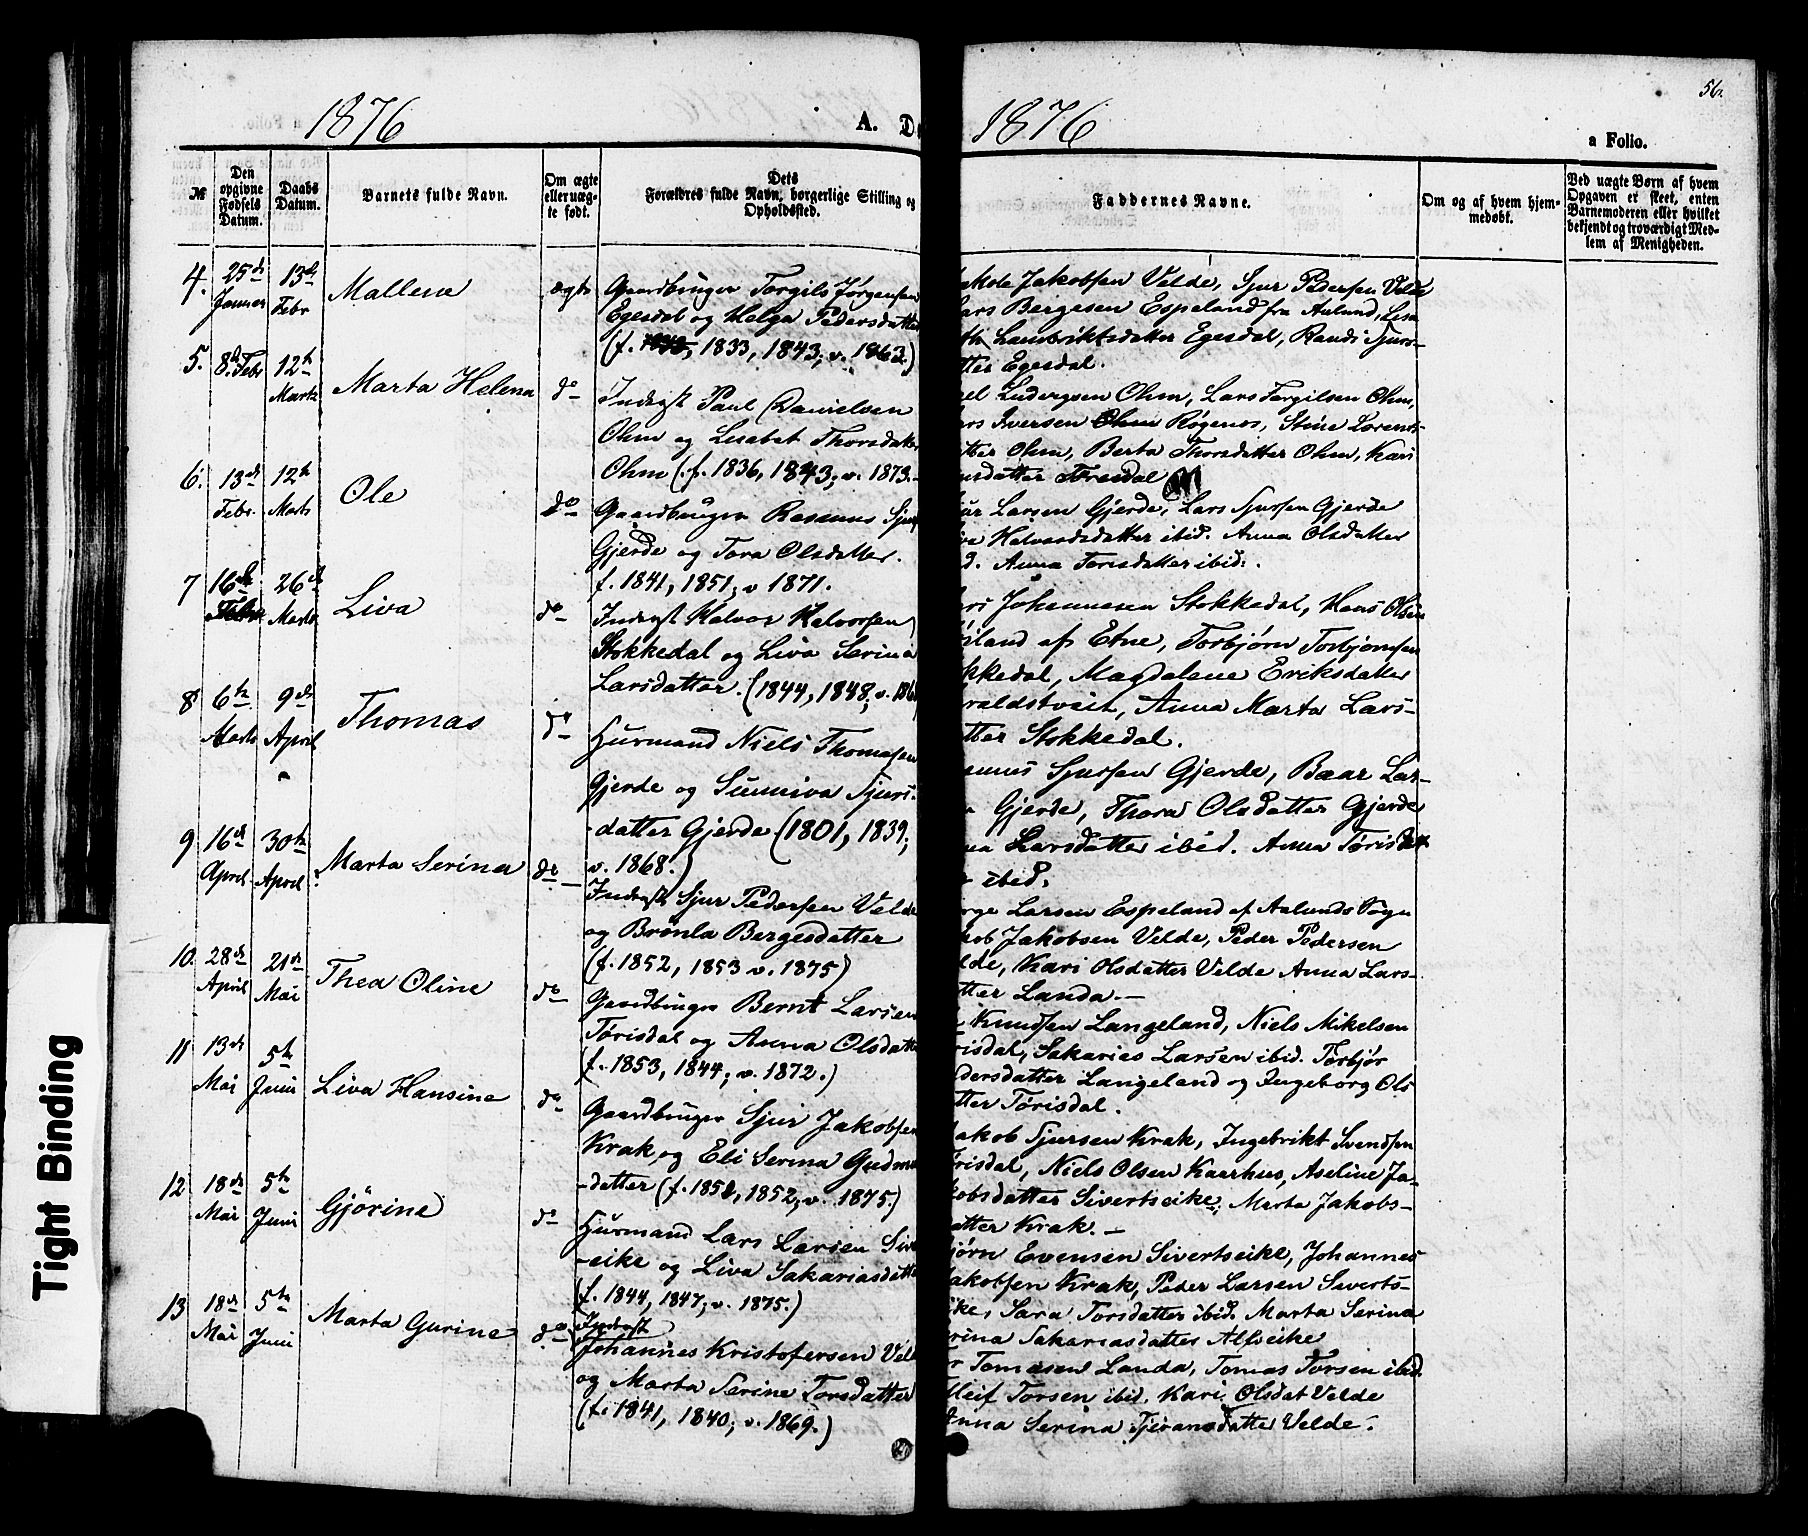 1876
A. D
№
Den opgivne Fødsels Datum.
Daabs Datum.
Barnets fulde Navn.
Om ægte eller uægte født.
Dets Forældres fulde Navn, borgerlige Stilling og Opholdssted.
4. 25de Januar 13de Febr Mallene ægte Gaardbruger Torgils Jørgensen
Egesdal og Helga Pedersdatter
(f. 1833, 1843; v. 1863.)
5. 8de Febr 12te Marts Marta Helena do Inderst Paul Danielsen
Ohm og Lisabet Thorsdatter
Ohm (f. 1836, 1843; v. 1873.
6. 13de Febr. 12te Marts Ole do Gaardbruger Rasmus Sjurs
Gjerde og Tora Olsdatter.
f. 1841, 1851; v 1871.
7 16de Febr. 26de Marts Liva do Inderst Halvor Halvorsen
Stokkedal og Liva Serina
Larsdatter. (1844, 1848; v. 186
8 6te Marts 9de April Thomas do Husmand Niels Thomassen
Gjerde og Sunniva Sjurs-
datter Gjerde (1801, 1839;
v. 1868.)
9 16de April 30te April. Marta Serina do Inderst Sjur Pedersen Velde
og Brønla Bergesdatter
(f. 1852, 1853 v. 1875)
10. 28de April 21de Mai Thea Oline do Gaardbruger Bernt Larsen
Tørisdal og Anna Olsdatt
(f. 1853, 1844; v. 1872.)
11 13de Mai 5te Juni Liva Hansine do Gaardbruger Sjur Jakobsen
Krak og Eli Serina Gudm
-datter (f. 1851, 1852; v. 1875.)
12 18de Mai 5te Juni Gjørine do Husmand Lars Larsen Siv
-eike og Liva Sakariasdatte
(f. 1844, 1847; v. 1875.)
13 18de Mai 5te Juni Marta Gurine do Inderst
Johannes Kristofersen Vel
og Marta Serine Torsdatter
(f. 1841, 1840; v. 1869.)
56.
1876
a Folio.
Faddernes Navne.
Om og af hvem hjemmedøbt.
Ved uægte Børn af hvem Opgaven er skeet, enten Barnemoderen eller hvilket bekjendt og troværdigt Medlem af Menigheden.
akob Jakobsen Velde, Sjur Pedersen Velde
ars Bergesen Espeland fra Aalund, Lisa
th Lambriktsdatter Egesdal, Randi Sjurs-
tter Egesdal.
el Ludvigsen Ohm, Lars Torgilsen Ohm,
rs Iversen Røgenes, Stine Lorents-
tter Ohm, Berta Thorsdatter Ohm, Kari
nsdatter Tresdal
jur Larsen Gjerde, Lars Sjursen Gjerde
iva Halvardsdatter ibid. Anna Olsdatter
d. Anna Torisdatter ibid.
ars Johannesen Stokkedal, Hans Olsen
iland af Etne, Torbjørn Torbjørnsen
kkedal, Magdalene Eriksdatter
raldstveit, Anna Marta Lars-
tter Stokkedal.
smus Sjursen Gjerde, Baar Lar-
n Gjerde, Thora Olsdatter Gjerde
na Larsdatter ibid. Anna Tørisdatt
r ibid.
rge Larsen Espeland af Aalunds Sogn
kob Jakobsen Velde, Peder Pedersen
lde, Kari Olsdatter Velde Anna Lars-
tter Landa.—
Knudsen Langeland, Niels Mikelsen
risdal, Sakarias Larsen ibid. Torbjør
dersdatter Langeland og Ingeborg Ols
tter Tørisdal.
akob Sjursen Krak, Ingebrikt Svendsen
risdal, Niels Olsen Kaarhus, Aseline Ja-
kobsdatter Sivertseike, Marta Jakobs-
atter Krak.—
jørn Evensen Sivertseike, Johannes
akobsen Krak, Peder Larsen Siverts-
ike, Sara Torsdatter ibid. Marta Serina
rina Sakariasdatter Alfseike
r Tomasen Landa, Tomas Torsen ibid.
lleif Torsen ibid. Kari Olsdat Velde
nna Serina Tjeransdatter Velde.
Tight Binding